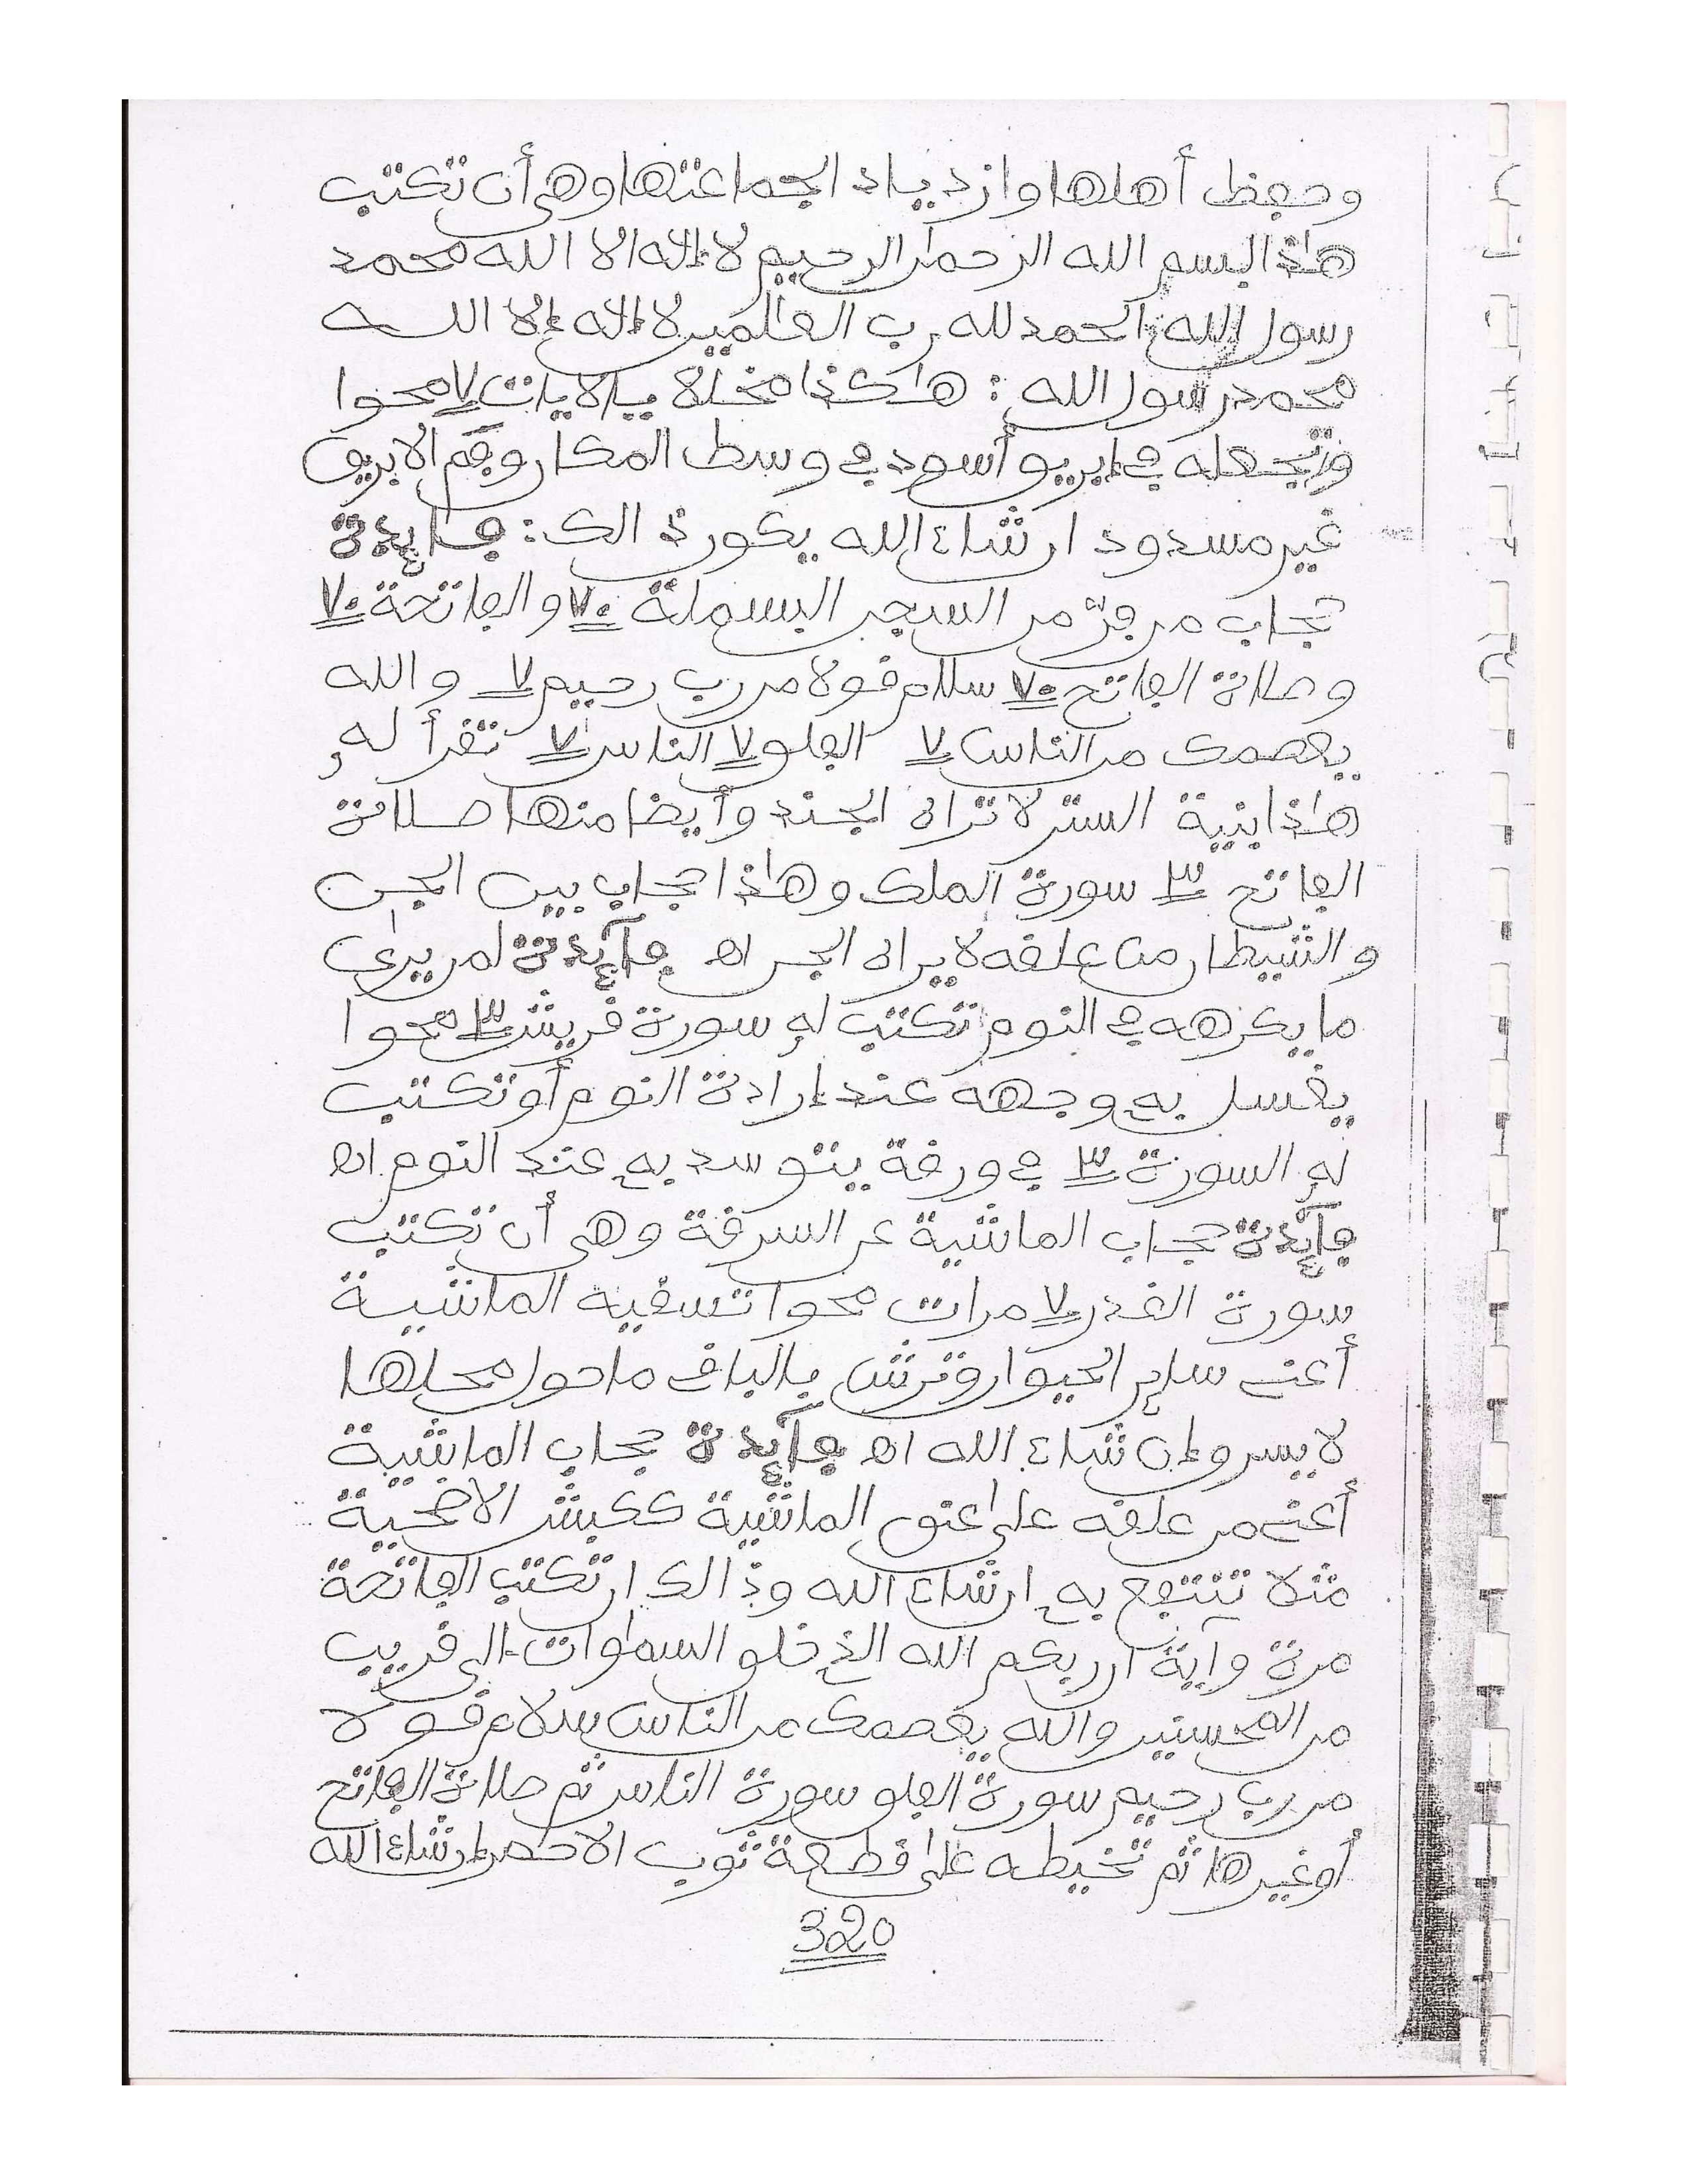 وحفظ أهلها وازدياد الجماعتها وهي أن تكتب
هاذا البسم الله الرحمن الرحيم لا إلاه الا الله محمد
رسول الله الحمد لله رب العالمين لا إلاه إلا الله
محمد رسول الله : هاكذا مخللة بالايات ٧ محوا
وتجعله في إبريق أسود في وسط المكان وفم الابريق
غير مسدود ان شاء الله يكون ذالك : فايدة
حجاب من فر من السجن البسملة ٧٠ والفاتحة ٧٠
وصلاة الفاتح ٧٠ سلام قولا من رب رحيم ٧ والله
يعصمك من الناس ٧ الفلق ٧ الناس ٧ تقرأ له
هاذا بنية الستر لا تراه الجند وأيضا منها صلاة
الفاتح ٣ سورة الملك وهاذا حجاب بين الجن
والشيطان من علقه لا يراه الجن اه فآيدة لمن يرى
ما يكرهه في النوم تكتب له سورة قريش ٣ محوا
يغسل به وجهه عند إرادة النوم أو تكتب
له السورة ٣ في ورقة يتوسد به عند النوم اه
فآيدة حجاب الماشية عن السرقة وهي أن تكتب
سورة القدر ٧ مرات محوا تسقيه الماشية
أعني ساير الحيوان وترش بالباقي ما حول محلها
لا يسرق إن شاء الله اه فآيدة حجاب الماشية
أعني من علقه على عنق الماشية ككبش الاضحية
مثلا تنتفع به ان شاء الله وذالك ان تكتب الفاتحة
مرة وآية ان ربكم الله الذي خلق السماوات الى قريب
من المحسنين والله يعصمك من الناس سلام قولا
من رب رحيم سورة الفلق سورة الناس ثم صلاة الفاتح
أو غيرها ثم تخيطه على قطعة ثوب الاحصر ان شاء الله
320